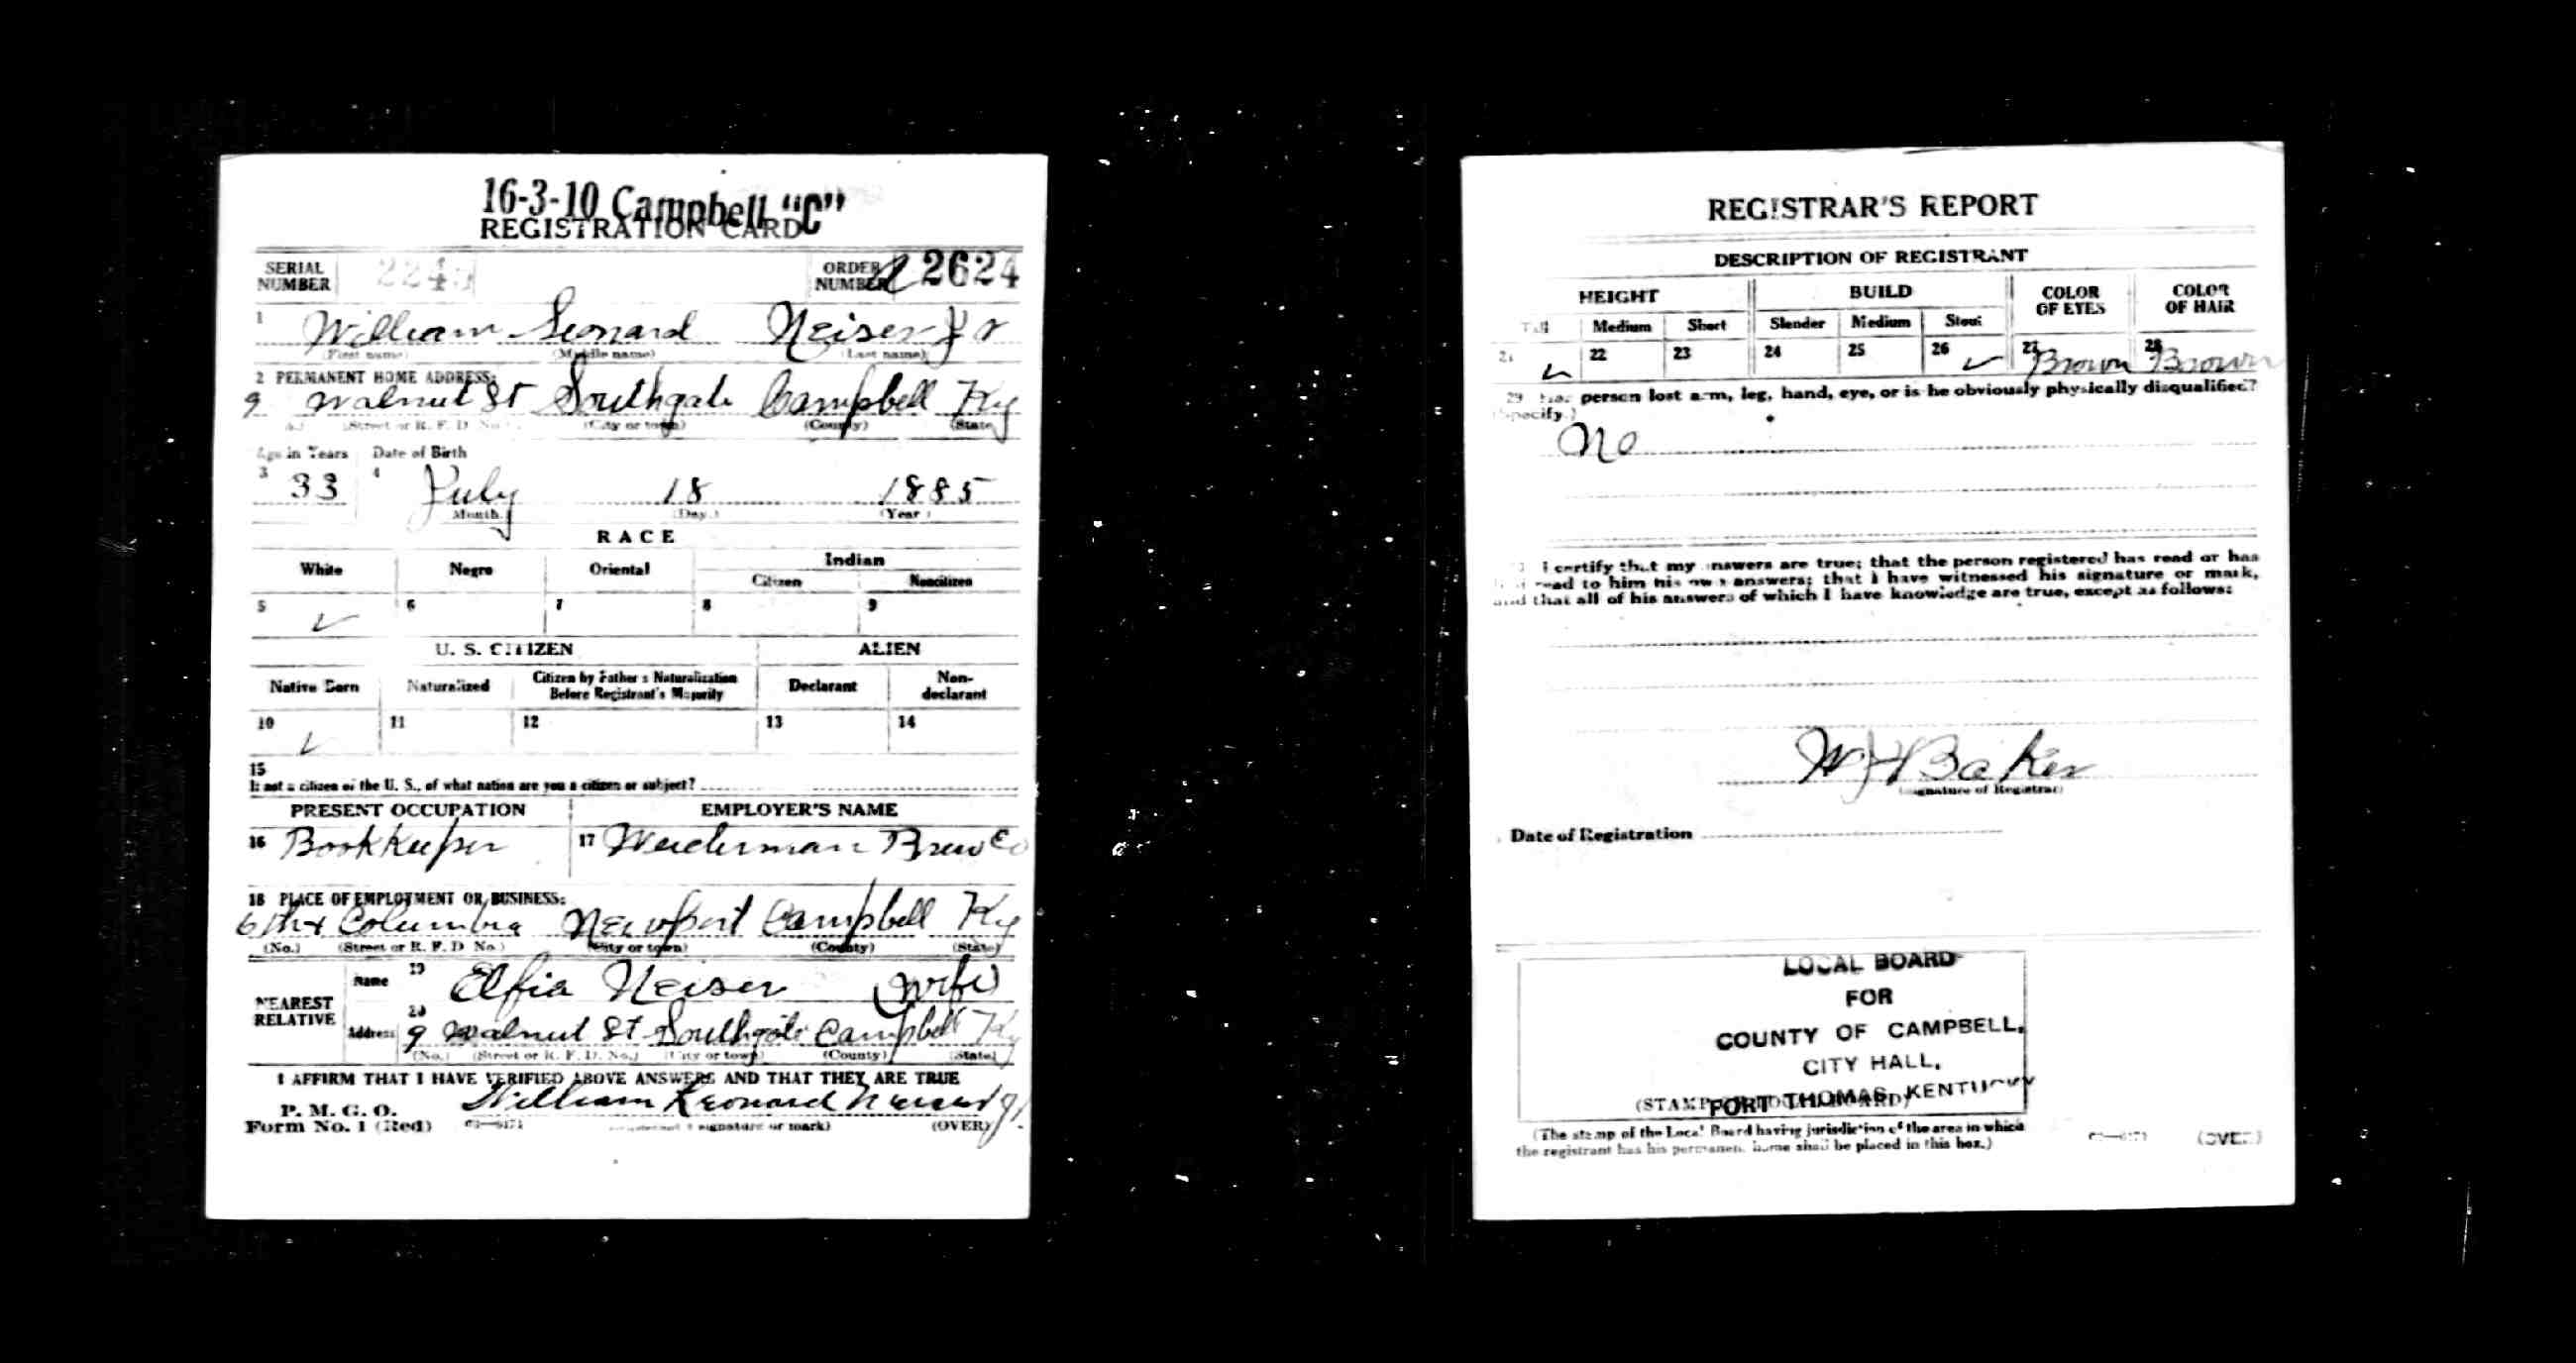 16-3-10 Campbell "C"
REGISTRATION CARD
SERIAL NUMBER 224 ORDER NUMBER A 2624
1 William Leonard Neiser Jr
(First name) (Middle name) (Last name)
2 PERMANENT HOME ADDRESS:
9 Walnut St Southgate Campbell Ky
(Street or R. F. D. No.) (City or town) (County) (State)
Age in Years Date of Birth
3 33 4 July 18 1885
Month. (Day.) (Year)
RACE
White Negro Oriental Indian
Citizen Noncitizen
5 ✓ 6 7 8 9
U. S. CITIZEN ALIEN
Native Born Naturalized Citizen by Father's Naturalization Before Registrant's Majority Declarant Non-declarant
10 ✓ 11 12 13 14
15
If not a citizen of the U. S., of what nation are you a citizen or subject?
PRESENT OCCUPATION EMPLOYER'S NAME
16 Bookkeeper 17 Weiderman Brew Co
18 PLACE OF EMPLOYMENT OR BUSINESS:
6th & Columbia Newport Campbell Ky
(No.) (Street or R. F. D. No.) (City or town) (County) (State)
NEAREST RELATIVE
Name 19 Elfia Neiser (wife)
Address 20 9 Walnut St Southgate Campbell Ky
(No.) (Street or R. F. D. No.) (City or town) (County) (State)
I AFFIRM THAT I HAVE VERIFIED ABOVE ANSWERS AND THAT THEY ARE TRUE
P. M. G. O.
Form No. 1 (Red) William Leonard Neiser Jr.
(Registrant's signature or mark) (OVER)
REGISTRAR'S REPORT
DESCRIPTION OF REGISTRANT
HEIGHT BUILD COLOR OF EYES COLOR OF HAIR
Tall Medium Short Slender Medium Stout
21 ✓ 22 23 24 25 26 ✓ 27 Brown 28 Brown
29 Has person lost arm, leg, hand, eye, or is he obviously physically disqualified?
(Specify.)
No
I certify that my answers are true; that the person registered has read or has
had read to him his own answers; that I have witnessed his signature or mark,
and that all of his answers of which I have knowledge are true, except as follows:
W H Baker
(Signature of Registrar)
Date of Registration
LOCAL BOARD
FOR
COUNTY OF CAMPBELL,
CITY HALL,
FORT THOMAS, KENTUCKY
(STAMP OF LOCAL BOARD)
(The stamp of the Local Board having jurisdiction of the area in which
the registrant has his permanent home shall be placed in this box.)
(OVER)